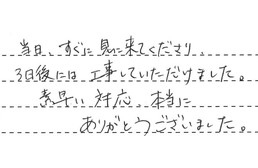 当日、すぐに見に来てくださり、
3日後には工事していただけました。
素早い対応、本当に
ありがとうございました。